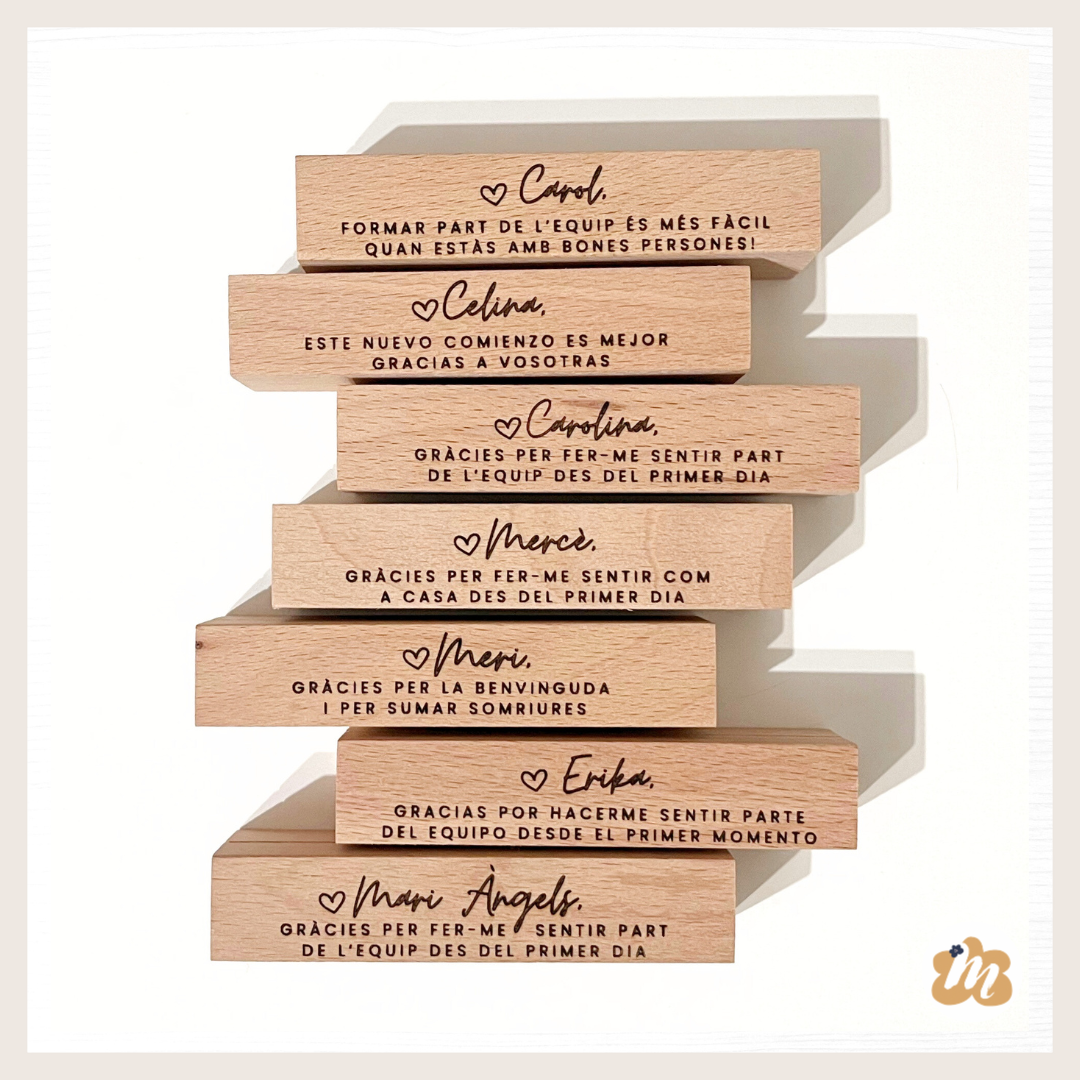 ♡ Carol,
FORMAR PART DE L'EQUIP ÉS MÉS FÀCIL
QUAN ESTÀS AMB BONES PERSONES!
♡ Celina,
ESTE NUEVO COMIENZO ES MEJOR
GRACIAS A VOSOTRAS
♡ Carolina,
GRÀCIES PER FER-ME SENTIR PART
DE L'EQUIP DES DEL PRIMER DIA
♡ Mercè,
GRÀCIES PER FER-ME SENTIR COM
A CASA DES DEL PRIMER DIA
♡ Meri,
GRÀCIES PER LA BENVINGUDA
I PER SUMAR SOMRIURES
♡ Erika,
GRACIAS POR HACERME SENTIR PARTE
DEL EQUIPO DESDE EL PRIMER MOMENTO
♡ Mari Àngels,
GRÀCIES PER FER-ME SENTIR PART
DE L'EQUIP DES DEL PRIMER DIA
m